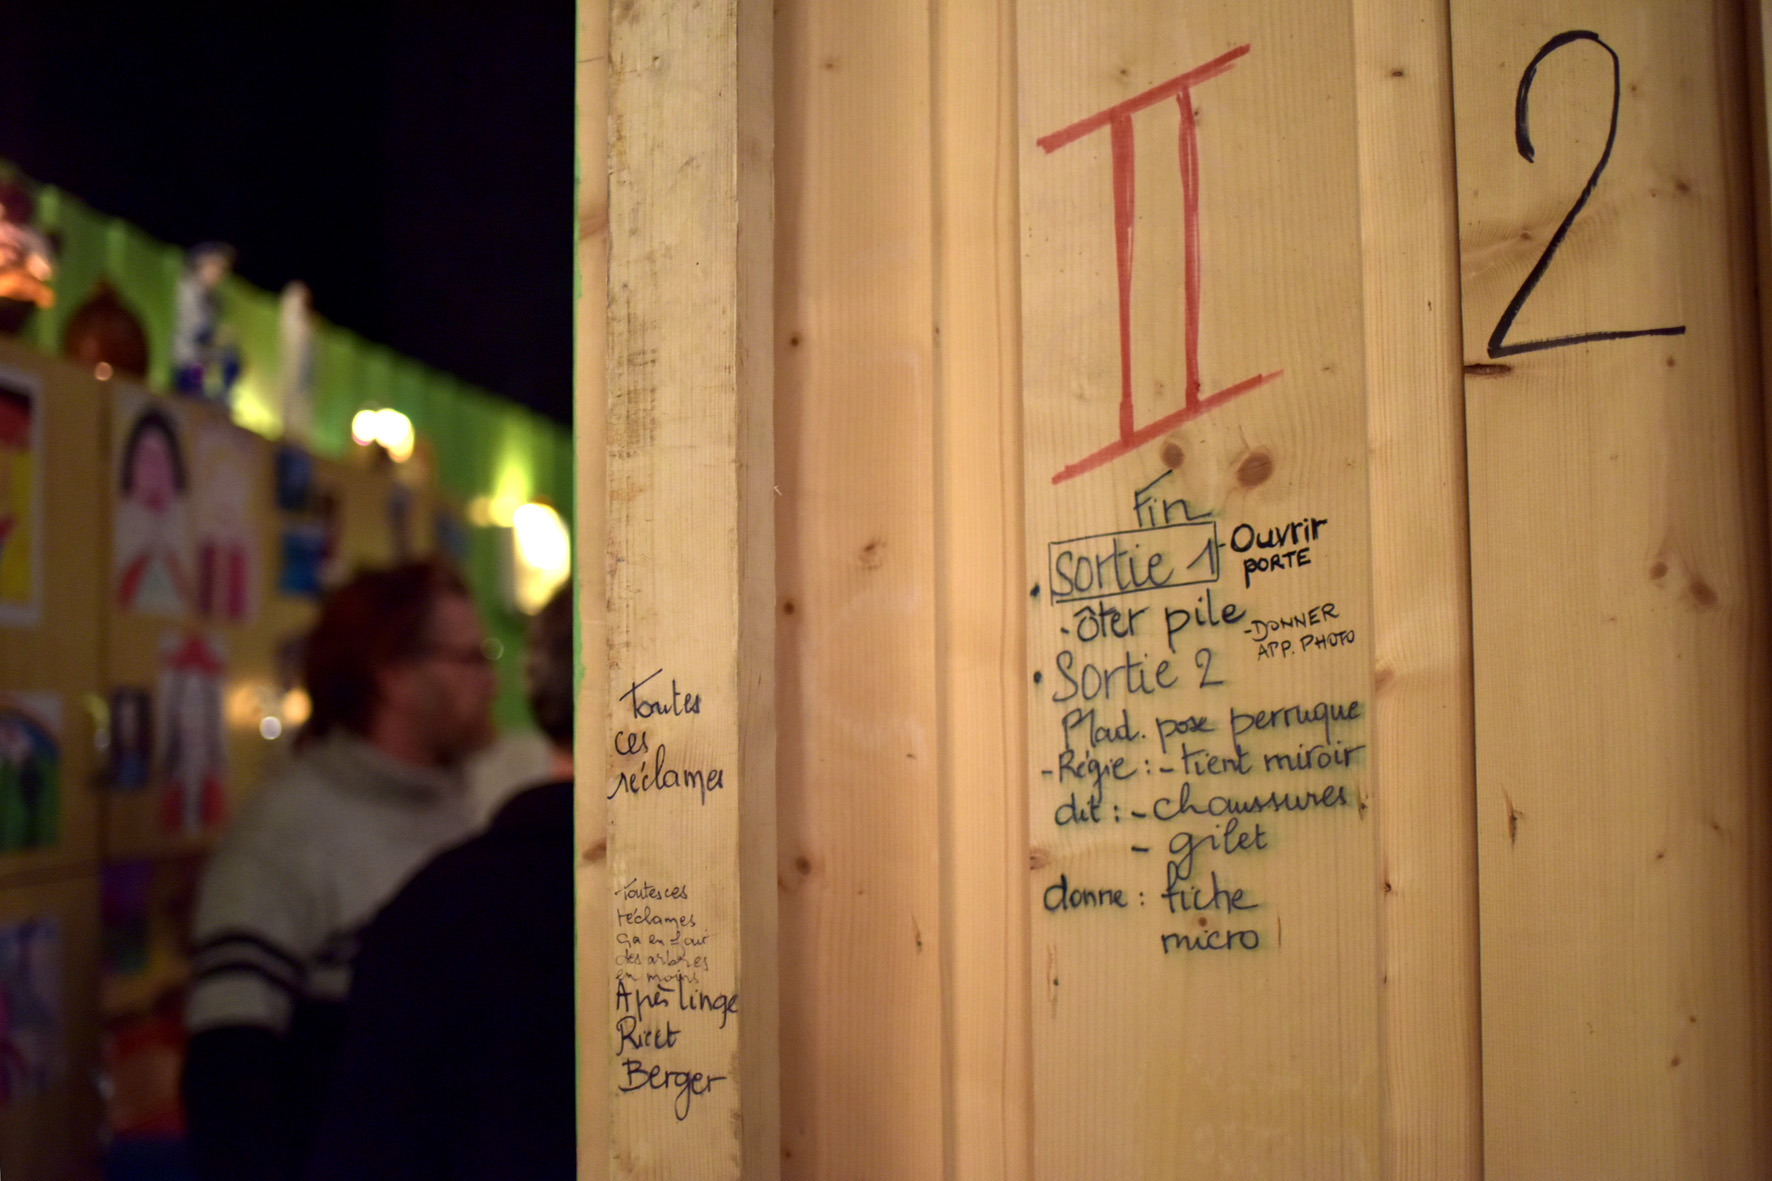 Toutes
ces
réclames
Toutes ces
réclames
ça en fait
des arbres
en moins
Après linge
Berger
II
Fin
• Sortie 1 - Ouvrir
PORTE
- ôter pile - DONNER
APP. PHOTO
• Sortie 2
Plad. pose perruque
- Régie : - tient miroir
dit : - chaussures
- gilet
donne : fiche
micro
2